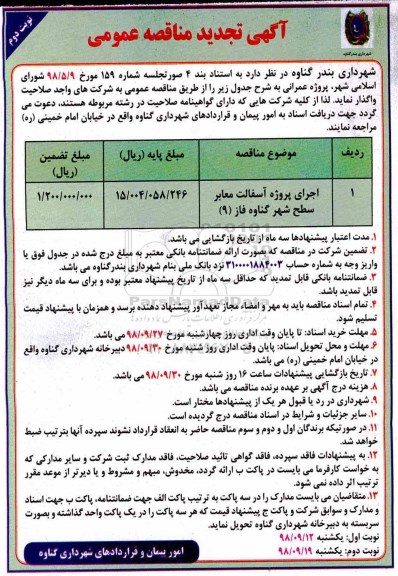 نوبت دوم
آگهی تجدید مناقصه عمومی
شهرداری بندر گناوه
شهرداری بندر گناوه در نظر دارد به استناد بند ۴ صورتجلسه شماره ۱۵۹ مورخ ۹۸/۵/۹ شورای
اسلامی شهر، پروژه عمرانی به شرح جدول زیر را از طریق مناقصه عمومی به شرکت های واجد صلاحیت
واگذار نماید. لذا از کلیه شرکت هایی که دارای گواهینامه صلاحیت در رشته مربوطه هستند، دعوت می
گردد جهت دریافت اسناد به امور پیمان و قراردادهای شهرداری گناوه واقع در خیابان امام خمینی (ره)
مراجعه نمایند.
ردیف موضوع مناقصه مبلغ پایه (ریال) مبلغ تضمین (ریال)
۱ اجرای پروژه آسفالت معابر سطح شهر گناوه فاز (۹) ۱۵/۰۰۴/۰۵۸/۲۴۶ ۱/۲۰۰/۰۰۰/۰۰۰
۱. مدت اعتبار پیشنهادها سه ماه از تاریخ بازگشایی می باشد.
۲. تضمین شرکت در مناقصه که بصورت ارائه ضمانتنامه بانکی معتبر به مبلغ درج شده در جدول فوق یا
واریز وجه به شماره حساب ۳۱۰۰۰۰۱۸۸۴۰۰۳ نزد بانک ملی بنام شهرداری بندرگناوه می باشد.
۳. ضمانتنامه بانکی قابل تمدید که حداقل سه ماه از تاریخ پیشنهاد معتبر بوده و برای سه ماه دیگر نیز
قابل تمدید باشد.
۴. تمام اسناد مناقصه باید به مهر و امضاء مجاز تعهدآور پیشنهاد دهنده برسد و همزمان با پیشنهاد قیمت
تسلیم شود.
۵. مهلت خرید اسناد: تا پایان وقت اداری روز چهارشنبه مورخ ۹۸/۰۹/۲۷ می باشد.
۶. مهلت و محل تحویل اسناد: پایان وقت اداری روز شنبه مورخ ۹۸/۰۹/۳۰ دبیرخانه شهرداری گناوه واقع
در خیابان امام خمینی (ره) می باشد.
۷. تاریخ بازگشایی پیشنهادات ساعت ۱۶ روز شنبه مورخ ۹۸/۰۹/۳۰ می باشد.
۸. هزینه درج آگهی بر عهده برنده مناقصه می باشد.
۹. شهرداری در رد یا قبول هر یک از پیشنهادها مختار است.
۱۰. سایر جزئیات و شرایط در اسناد مناقصه درج گردیده است.
۱۱. در صورتیکه برندگان اول و دوم و سوم مناقصه حاضر به انعقاد قرارداد نشوند سپرده آنها بترتیب ضبط
خواهد شد.
۱۲. به پیشنهادات فاقد سپرده، فاقد گواهی تائید صلاحیت، فاقد مدارک ثبت شرکت و سایر مدارکی که
به خواست کارفرما می بایست در پاکت ب ارائه گردد، مخدوش، مبهم و مشروط و یا دیرتر از موعد مقرر
ترتیب اثر داده نمی شود.
۱۳. متقاضیان می بایست مدارک را در سه پاکت به ترتیب پاکت الف جهت ضمانتنامه، پاکت ب جهت اسناد
و مدارک و سوابق شرکت و پاکت ج پیشنهاد قیمت که هر سه پاکت را در یک پاکت واحد گذاشته و بصورت
سربسته به دبیرخانه شهرداری گناوه تحویل نماید.
نوبت اول: یکشنبه ۹۸/۰۹/۱۲
نوبت دوم: یکشنبه ۹۸/۰۹/۱۹
امور پیمان و قراردادهای شهرداری گناوه